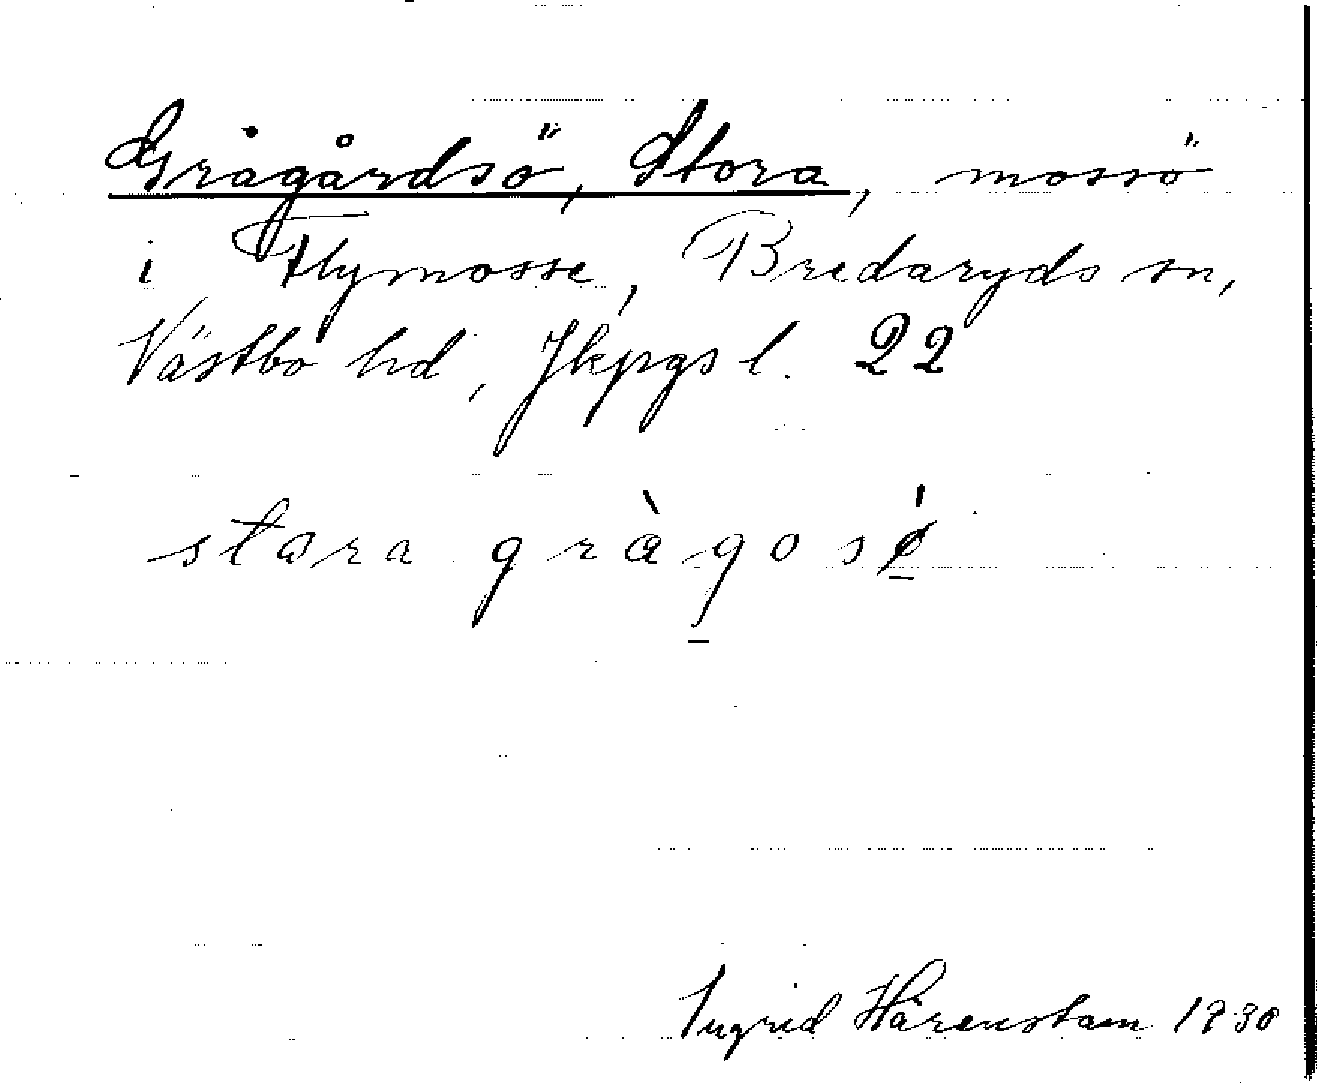 Grågårdsö, Stora, mossö
i Flymosse, Bredaryds sn,
Västbo hd, Jkpgs l. 22
stora gràgosǿ
Ingrid Härenstam 1930